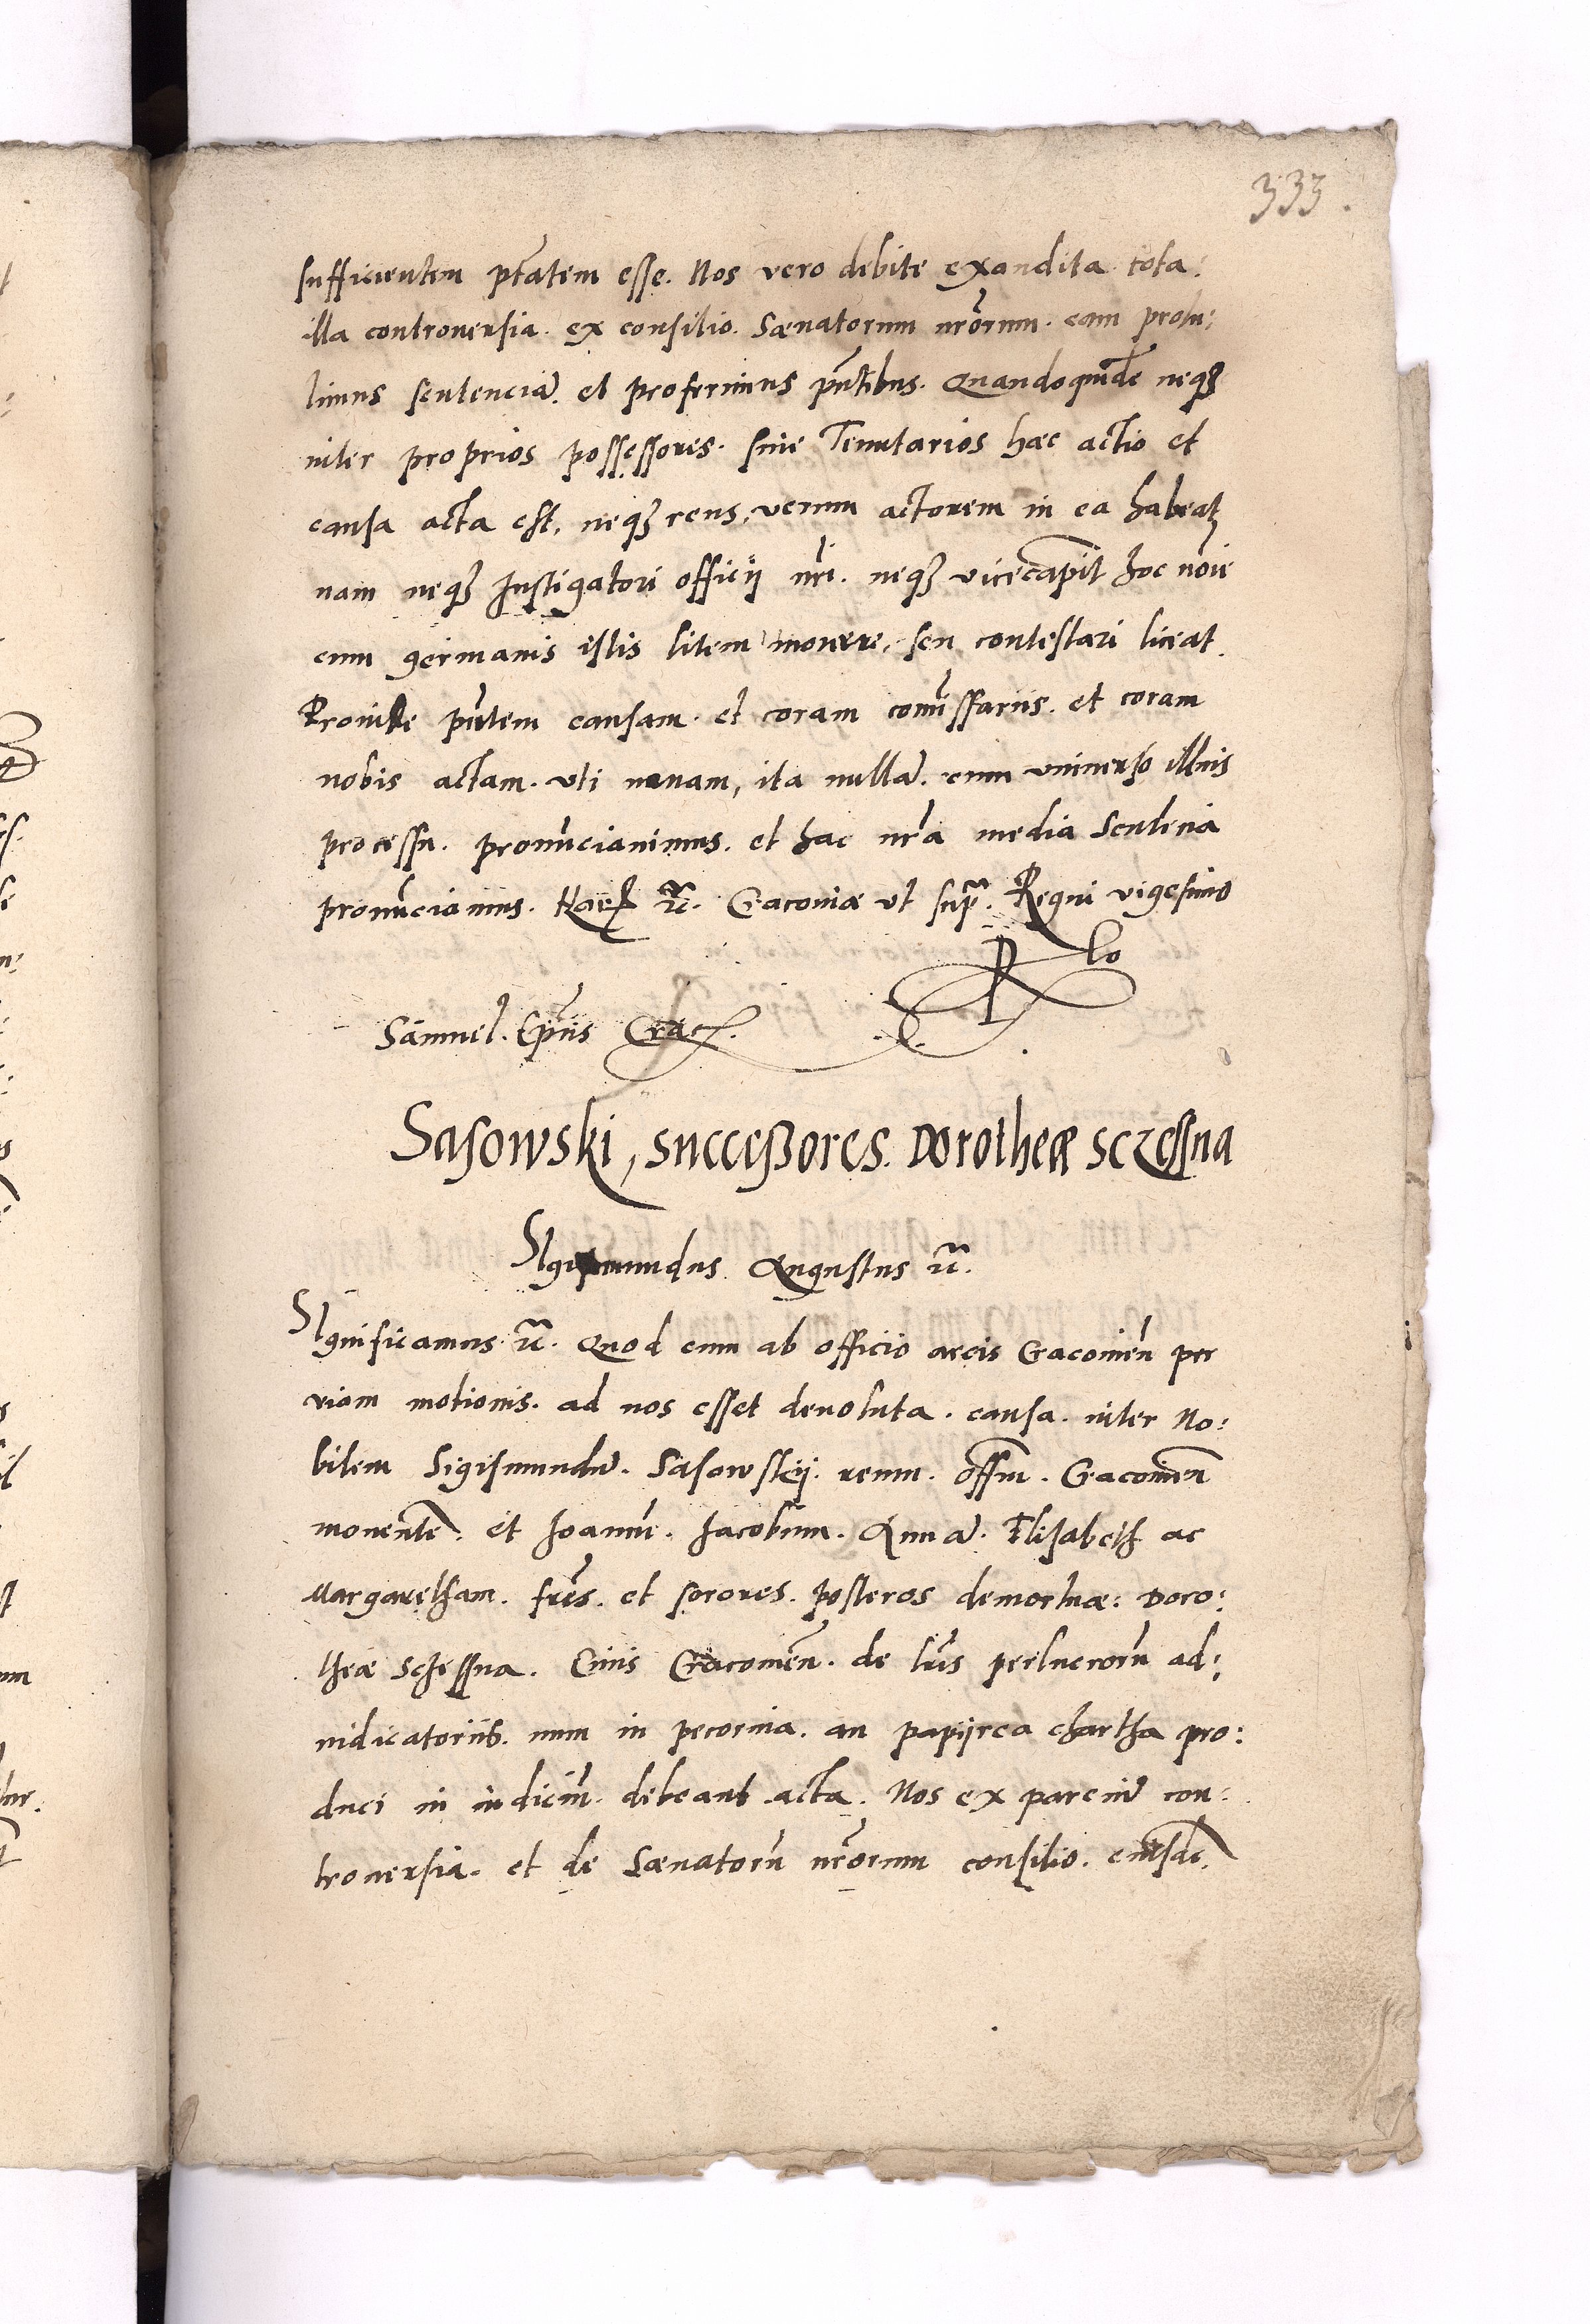 333.
sufficientem ptātem esse. Nos vero debite exaudita tota:
illa controuersia. ex consilio. Sænatorum nrōrum. eam protu:
limus sentenciā. et proferimus pn̄tibus. Quandoquidē neq3
inter proprios possessores. siue Tenutarios hæc actio et
causa acta est, neq3 reus, verum actorem in ea habeat,
nam neq3 Instigatori officij nr̄i. neq3 vicecapit hoc noīe
cum germanis istis litem mouere, seu contestari liceat.
Proinde pn̄tem causam. et coram com̄issariis. et coram
nobis actam. vti nouam, ita nullā. cum vniuerso illius
processu. pronūciauimus. et hac nr̄a media Sentēcia
pronūciamus. Har. rc̄. Cracouiæ vt supr̄. Regni vigesimo
R lo
Samuel. Ep̄us Crac.
Sasowski, successores. Dorotheæ sczessna
Sigismundus Augustus rc̄.
Significamus rc̄. Quod cum ab officio arcis Cracouien̄ per
viam motionis. ad nos esset deuoluta. causa. inter No:
bilem Sigismundū. Sasowskij. reum. offm̄. Cracouien̄
mouentē. et Joannē. Jacobum. Annā. Elisabeth ac
Margaretham. frēs. et sorores. posteros demortuæ: Doro:
theæ Schessna. Ciuis Cracouien̄. de lrīs perlucrorū ad:
iudicatoriis. num in pecorina. an papijrea chartha pro:
duci in iudiciū. debeant acta. Nos ex pareniū con:
trouersia. et de Sænatorū nrōrum consilio. eiusdē.